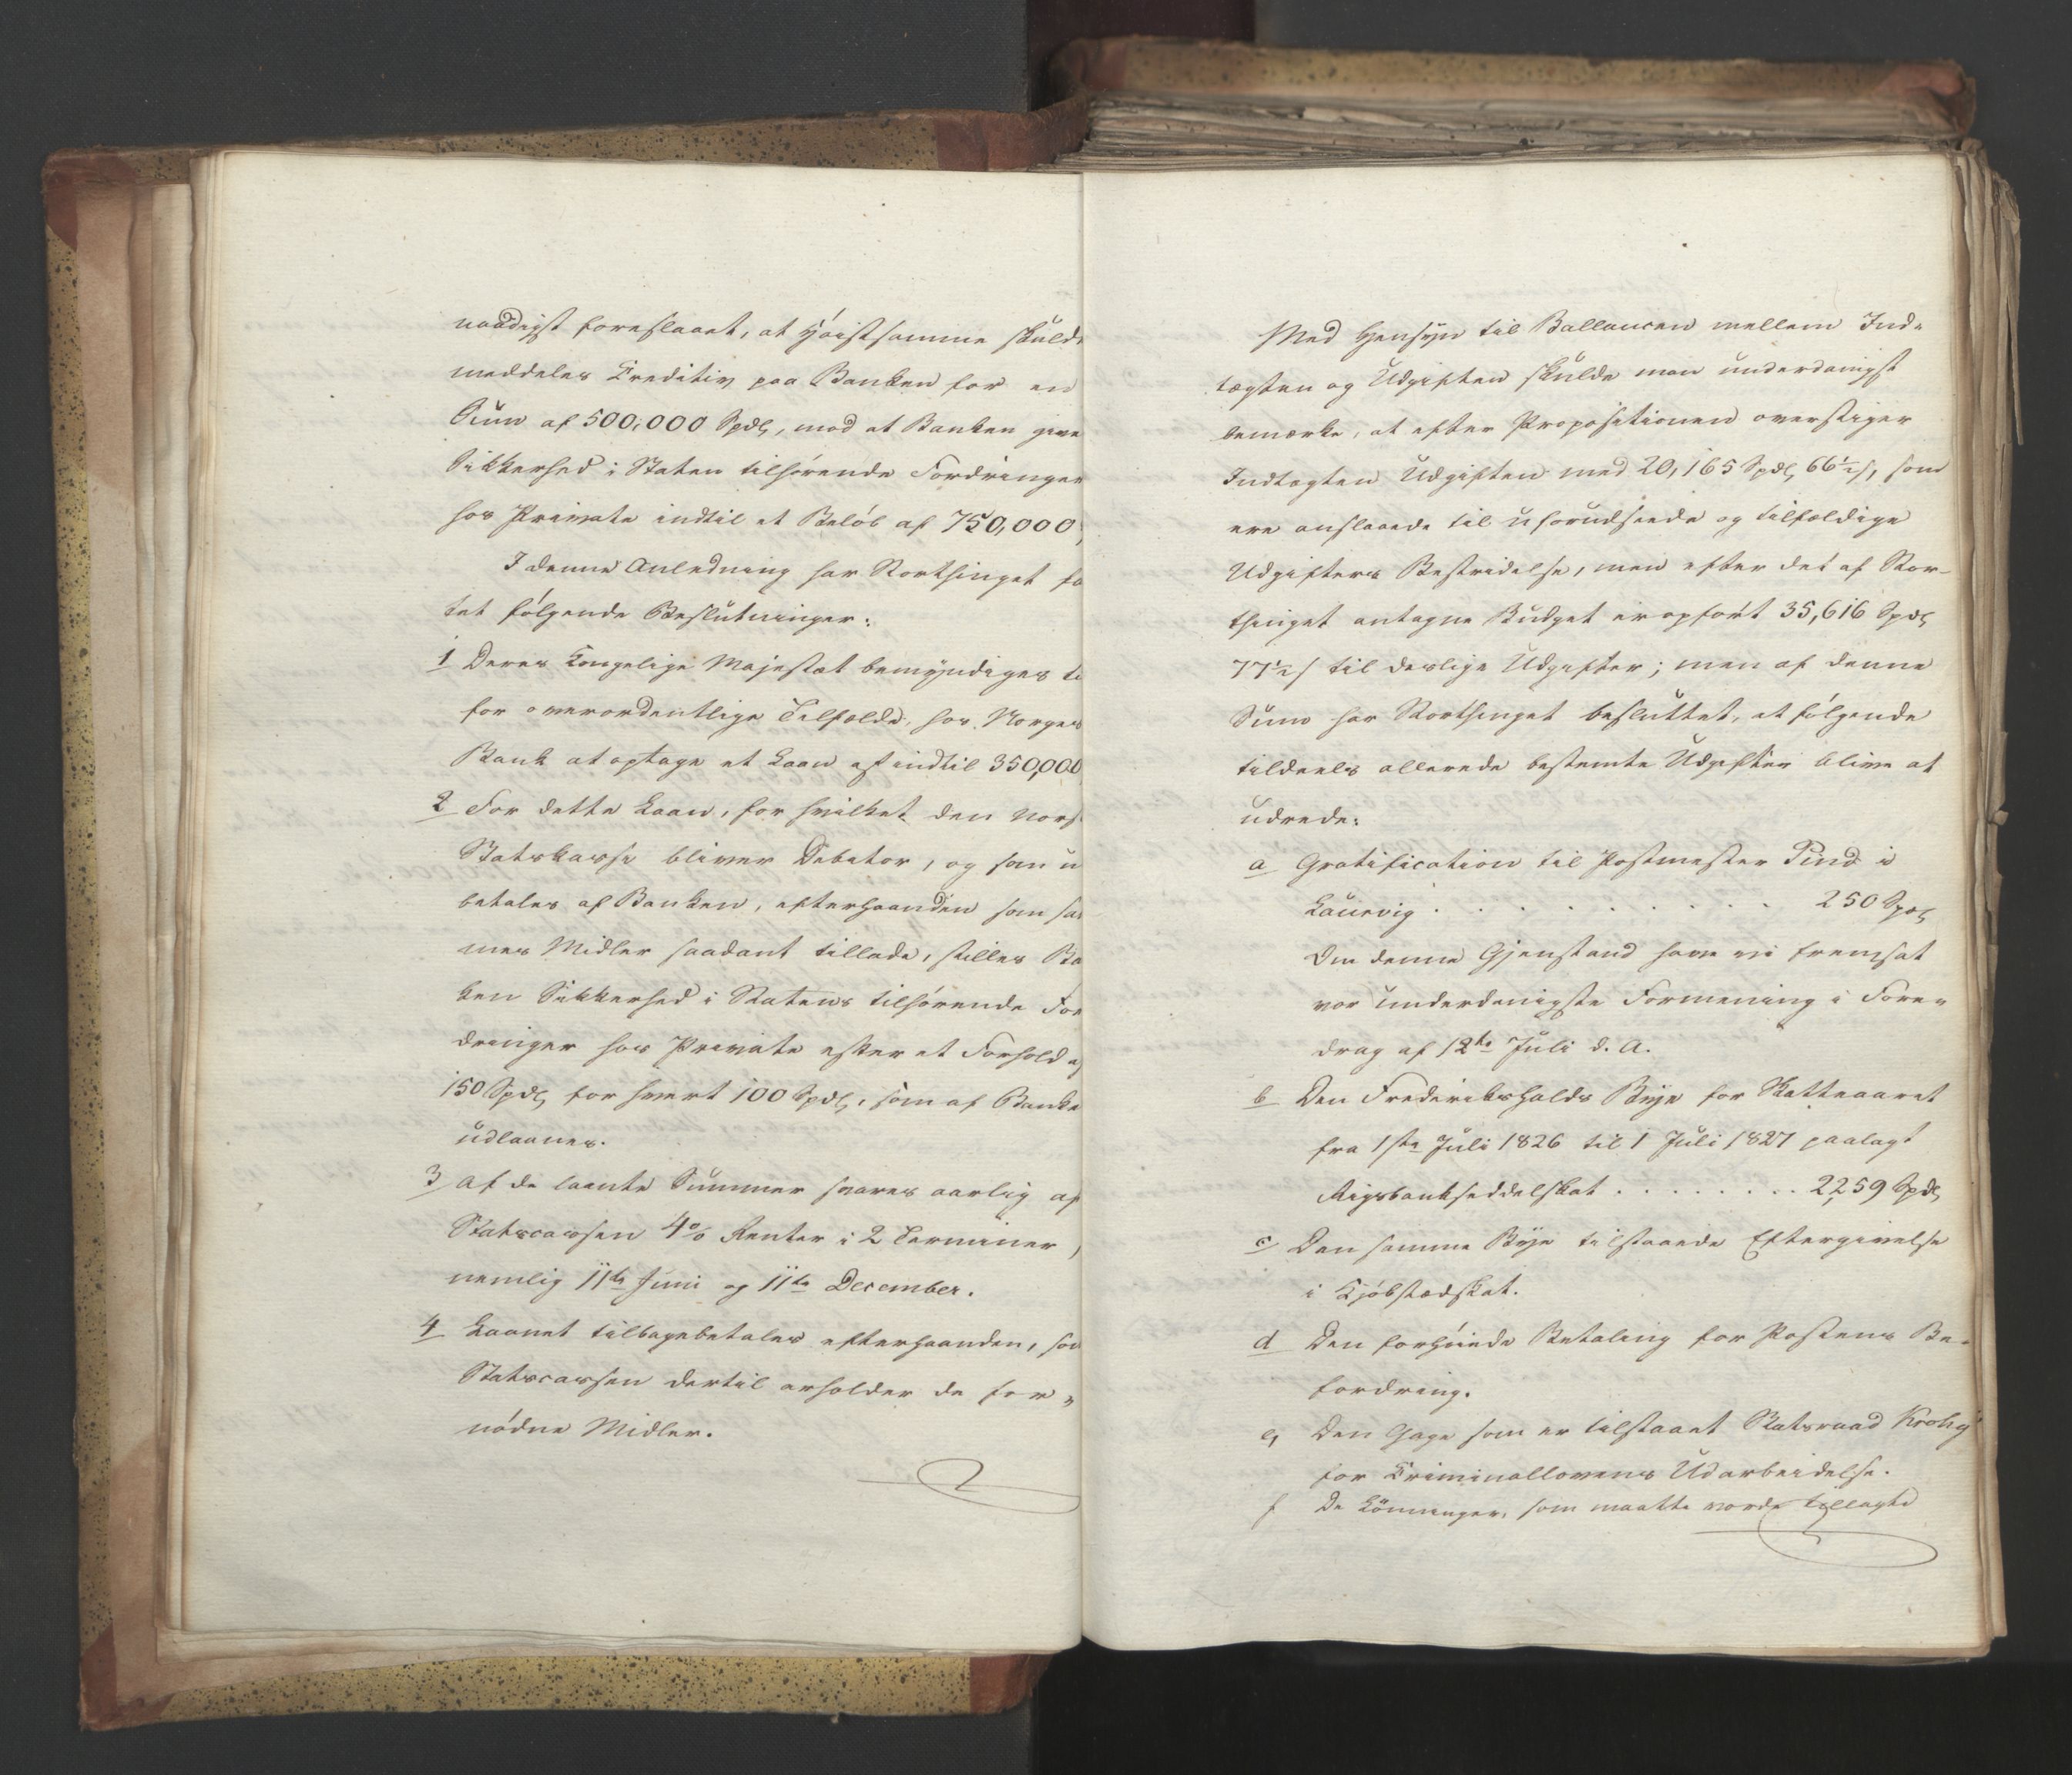 naadigst foreslaaet, at Høistsamme skuld
meddeles Creditiv paa Banken for en
Sum af 500,000 Spdl, mod at Banken gives
Sikkerhed i Staten tilhørende Fordringer
hos Private indtil et Beløb af 750,000
I denne Anledning har Storthinget fa
tet følgende Beslutninger:
1 Deres Kongelige Majestæt bemyndiges ti
for overordentlige Tilfælde, hos Norges
Bank at optage et Laan af indtil 350,000
2 For dette Laan, for hvilket den Nors
Statskasse bliver Debitor, og som u
betales af Banken, efterhaanden som sa
mes Midler saadant tillade, stilles Ba
ken Sikkerhed i Statens tilhørende For
dringer hos Private efter et Forhold af
150 Spdl for hvert 100 Spdl, som af Banke
udlaanes.
3 Af de laante Summer svares aarlig af
Statscassen 4% Renter i 2 Terminer,
nemlig 11te Juni og 11te December.
4 Laanet tilbagebetales efterhaanden, som
Statscassen dertil erholder de for-
nødne Midler.
Med Hensyn til Ballancen mellem Ind-
tægten og Udgiften skulde man underdanigst
bemærke, at efter Propositionen overstiger
Indtægten Udgiften med 20,165 Spdl 66½ s, som
ere anslaaede til uforudseede og tilfældige
Udgifters Bestridelse, men efter det af Stor-
thinget antagne Budget er opført 35,616 Spdl
77½ s til deslige Udgifter; men af denne
Sum har Storthinget besluttet, at følgende
tildeels allerede bestemte Udgifter blive at
udrede:
a Gratification til Postmester Pind i
Laurvig . . . . . . . . . 250 Spdl
Om denne Gjenstand have vi fremsat
vor underdanigste Formening i Fore-
drag af 12te Juli d. A.
b Den Frederikshalds Bye for Skatteaaret
fra 1ste Juli 1826 til 1 Juli 1827 paalagt
Rigsbankseddelskat . . . . . . . . 2,259 Spdl
c Den samme Bye tilstaaede Eftergivelse
i Kjøbstædskat.
d Den forhøiede Betaling for Postens Be-
fordring.
e, Den Gage som er tilstaaet Statsraad Krohg
for Criminallovens Udarbeidelse.
f De Lønninger, som maatte vorde tillagte